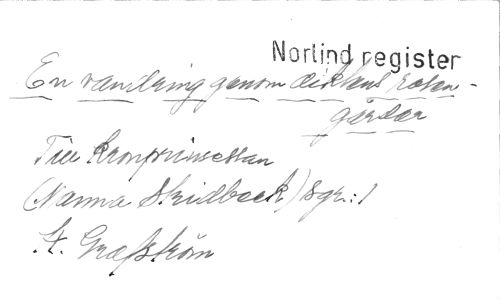 Norlind register
En vandring genom diktens rosen-
gårdar
Till Kronprinsessan
(Nanna Skridbeck) sgr.:1
H. Grafström